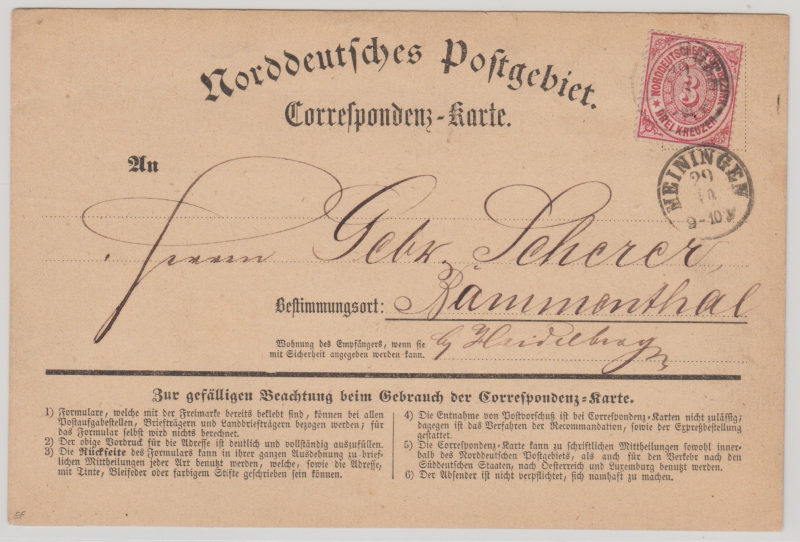 Norddeutsches Postgebiet.
Correspondenz-Karte.
NORDDEUTSCHER POSTBEZIRK
3
DREI KREUZER
MEININGEN
29
9-10
An
Herrn Gebr. Scherer
Bestimmungsort: Bammenthal
Wohnung des Empfängers, wenn sie
mit Sicherheit angegeben werden kann.
b/ Heidelberg
Zur gefälligen Beachtung beim Gebrauch der Correspondenz-Karte.
1) Formulare, welche mit der Freimarke bereits beklebt sind, können bei allen
Postaufgabestellen, Briefträgern und Landbriefträgern bezogen werden; für
das Formular selbst wird nichts berechnet.
2) Der obige Vordruck für die Adresse ist deutlich und vollständig auszufüllen.
3) Die Rückseite des Formulars kann in ihrer ganzen Ausdehnung zu brief-
lichen Mittheilungen jeder Art benutzt werden, welche, sowie die Adresse,
mit Tinte, Bleifeder oder farbigem Stifte geschrieben sein können.
4) Die Entnahme von Postvorschuß ist bei Correspondenz-Karten nicht zulässig;
dagegen ist das Verfahren der Recommandation, sowie der Expreßbestellung
gestattet.
5) Die Correspondenz-Karte kann zu schriftlichen Mittheilungen sowohl inner-
halb des Norddeutschen Postgebiets, als auch für den Verkehr nach den
Süddeutschen Staaten, nach Oesterreich und Luxemburg benutzt werden.
6) Der Absender ist nicht verpflichtet, sich namhaft zu machen.